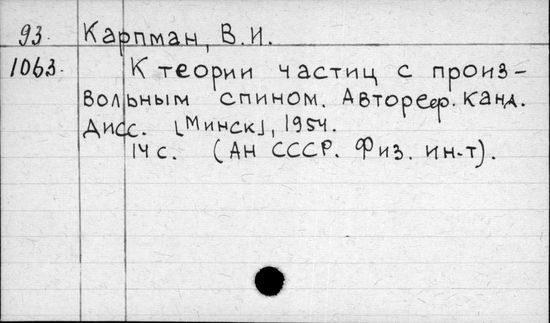 93. Карпман, В.И.
1063. К теории частиц с произ-
вольным спином. Автореф. канд.
дисс. [Минск], 1954.
14 с. (АН СССР. Физ. ин-т).